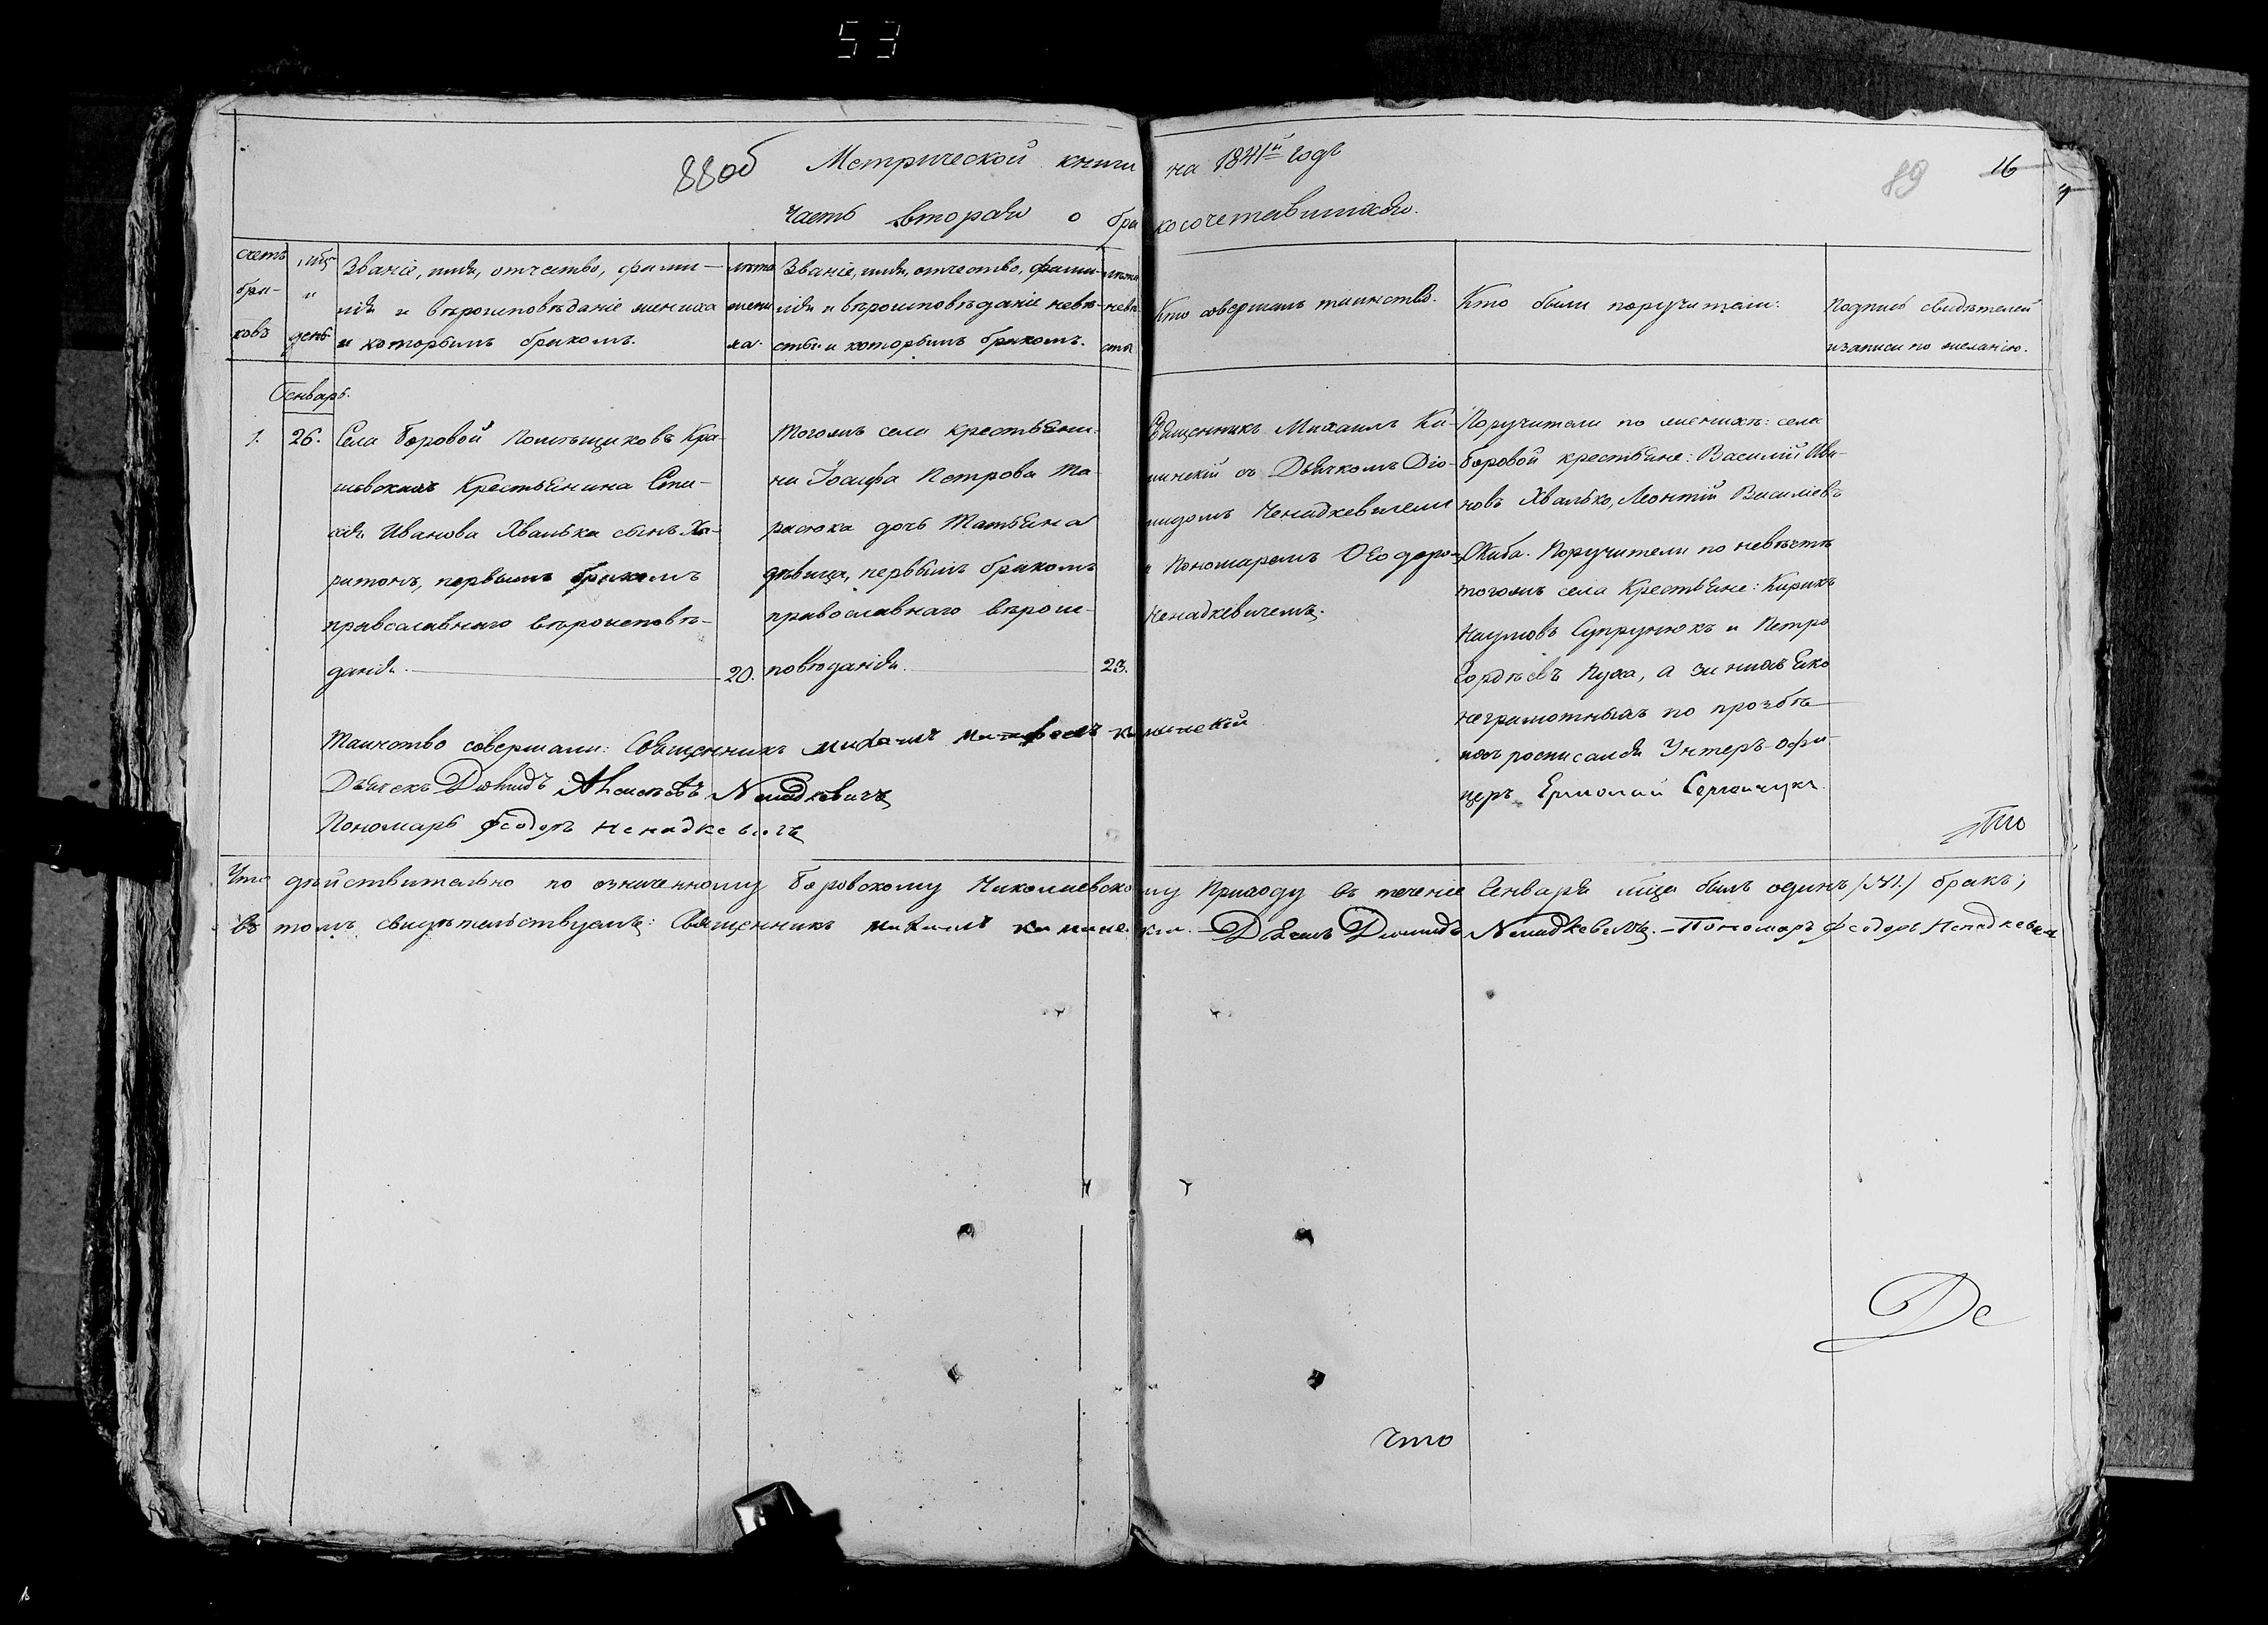 53
88об Метрической книги на 1841й годъ
89 16
Часть вторая о бракосочетавшихся.
счетъ браковъ
мць и день
Званіе, имя, отчество, фамилія и вѣроисповѣданіе жениха и которымъ бракомъ.
лѣта жениха.
Званіе, имя, отчество, фамилія и вѣроисповѣданіе невѣсты и которымъ бракомъ.
лѣта невѣсты
Кто совершалъ таинство.
Кто были поручители:
Подпись свидѣтелей
и записи по желанію.
Генварь.
1. 26.
Села Боровой Помѣщиковъ Кра-
шевскихъ Крестьянина
Иванова Хвалька сынъ Ха-
ритонъ, первымъ бракомъ
православнаго вѣроисповѣ-
данія. 20.
Тогожъ села крестьяни-
на Іосифа Петрова Та-
расюка дочь Татьяна
дѣвица, первымъ бракомъ
православнаго вѣроис-
повѣданія. 23.
Священникъ Михаилъ Ка-
минскій съ Дьячкомъ Діо-
мидомъ Ненадкевичемъ
и Пономаремъ Ѳеодоро-
Ненадкевичемъ.
Поручители по женихѣ: села
Боровой крестьяне: Василій Ива-
новъ Хвалько, Леонтій Василіевъ
Скиба. Поручители по невѣстѣ
тогожъ села Крестьяне: Кирикъ
Наумовъ Супрунюкъ и Петро
Гордѣевъ Пуха, а за нихъ яко
неграмотныхъ по прозбѣ
ихъ росписался Унтеръ-офи-
церъ Ермолай
Таинство совершали: Священникъ Михаилъ Каминскій
Дьячекъ Діомидъ Ненадкевичъ
Пономарь Феодоръ Ненадкевичъ
Что
Что дѣйствительно по означенному Боровскому Николаевскому Приходу въ теченіе Генваря мца былъ одинъ /№1./ бракъ;
въ томъ свидѣтельствуемъ: Священникъ Михаилъ Каминскій. – Дьячекъ Діомидъ Ненадкевичъ. – Пономарь Феодоръ Ненадкевичъ
Де
что